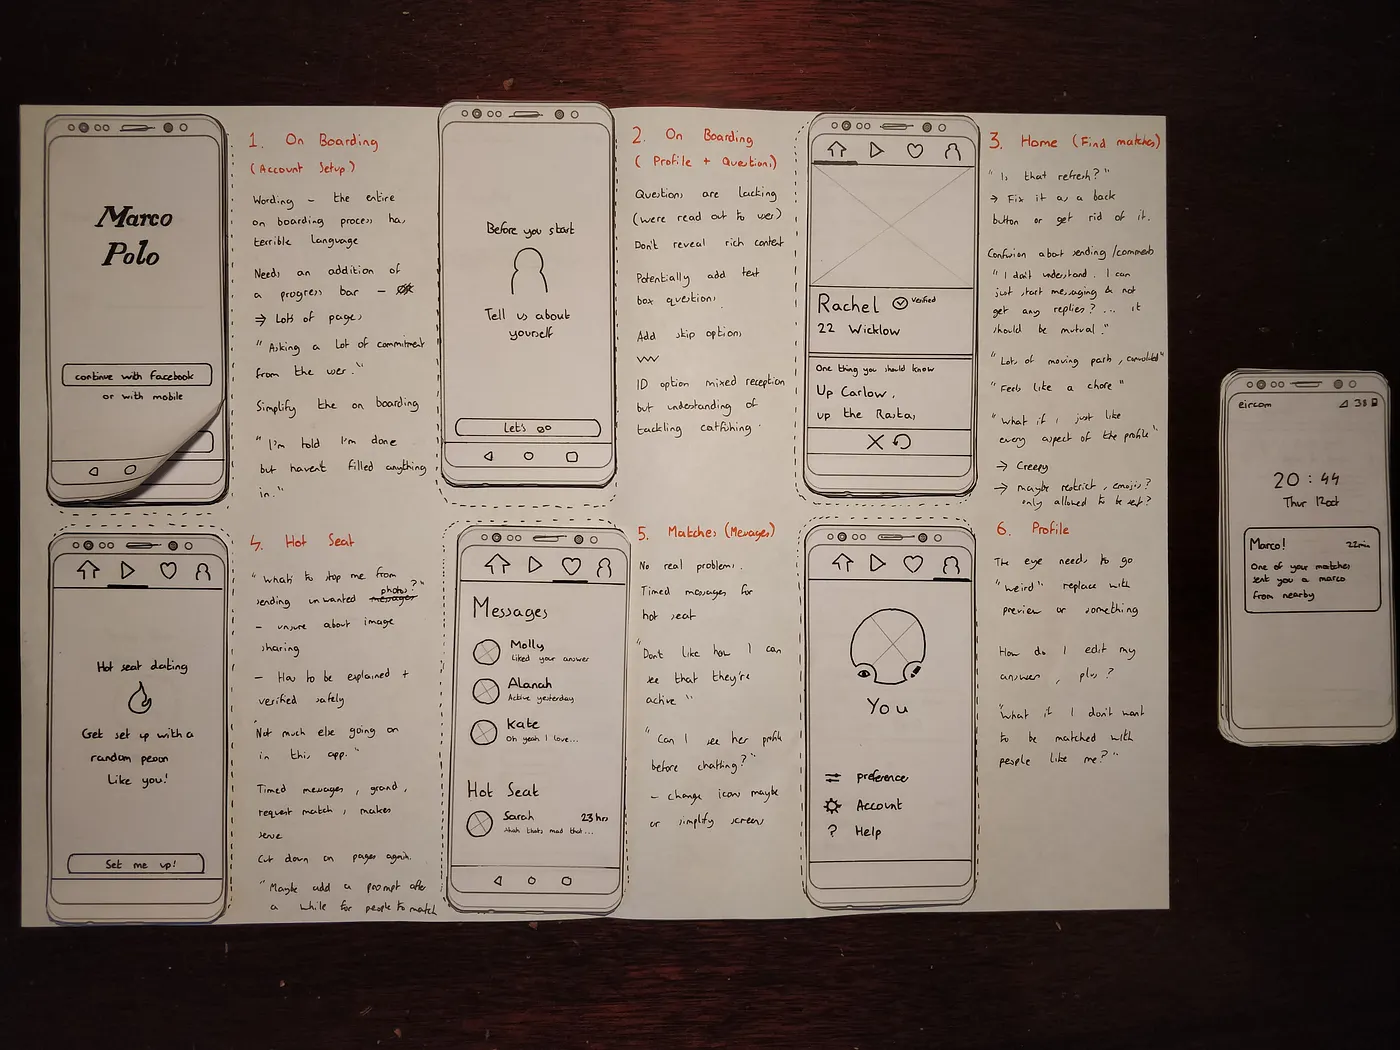 Marco
Polo
continue with facebook
or with mobile
1. On Boarding
(Account Setup)
Wording - the entire
on boarding process has
terrible language
Needs an addition of
a progress bar -
⇒ Lots of pages
"Asking a lot of commitment
from the user."
Simplify the on boarding
"I'm told I'm done
but havent filled anything
in."
Before you start
Tell us about
yourself
Let's go
2. On Boarding
(Profile + Questions)
Questions are lacking
(were read out to user)
Don't reveal rich content
Potentially add text
box questions
Add skip options
ID option mixed reception
but understanding of
tackling catfishing.
Rachel Verified
22 Wicklow
One thing you should know
Up Carlow,
up the Rastas
3. Home (Find matches)
"Is that refresh?"
→ Fix it as a back
button or get rid of it.
Confusion about sending/comments
"I don't understand. I can
just start messaging & not
get any replies? ... it
should be mutual."
"Lots of moving parts, convoluted"
"Feels like a chore"
"What if I just like
every aspect of the profile"
→ Creepy
→ maybe restrict, emojis?
only allowed to be sent?
Hot seat dating
Get set up with a
random person
like you!
Set me up!
4. Hot Seat
"whats to stop me from
sending unwanted messages photos?"
- unsure about image
sharing
- Has to be explained +
verified safely
"Not much else going on
in this app."
Timed messages, grand,
request match, makes
sense
Cut down on pages again.
"Maybe add a prompt after
a while for people to match
Messages
Molly
Liked your answer
Alanah
Active yesterday
Kate
Oh yeah I love...
Hot Seat
Sarah 23 hrs
Ahah thats mad that...
5. Matches (Messages)
No real problems.
Timed messages for
hot seat
"Dont like how I can
see that they're
active"
"Can I see her profile
before chatting?"
- change icons maybe
or simplify screens
You
preference
Account
? Help
6. Profile
The eye needs to go
"weird" replace with
preview or something
How do I edit my
answers, plus?
"What if I don't want
to be matched with
people like me?"
eircom 38
20:44
Thur 12 Oct
Marco! 22min
One of your matches
sent you a marco
from nearby